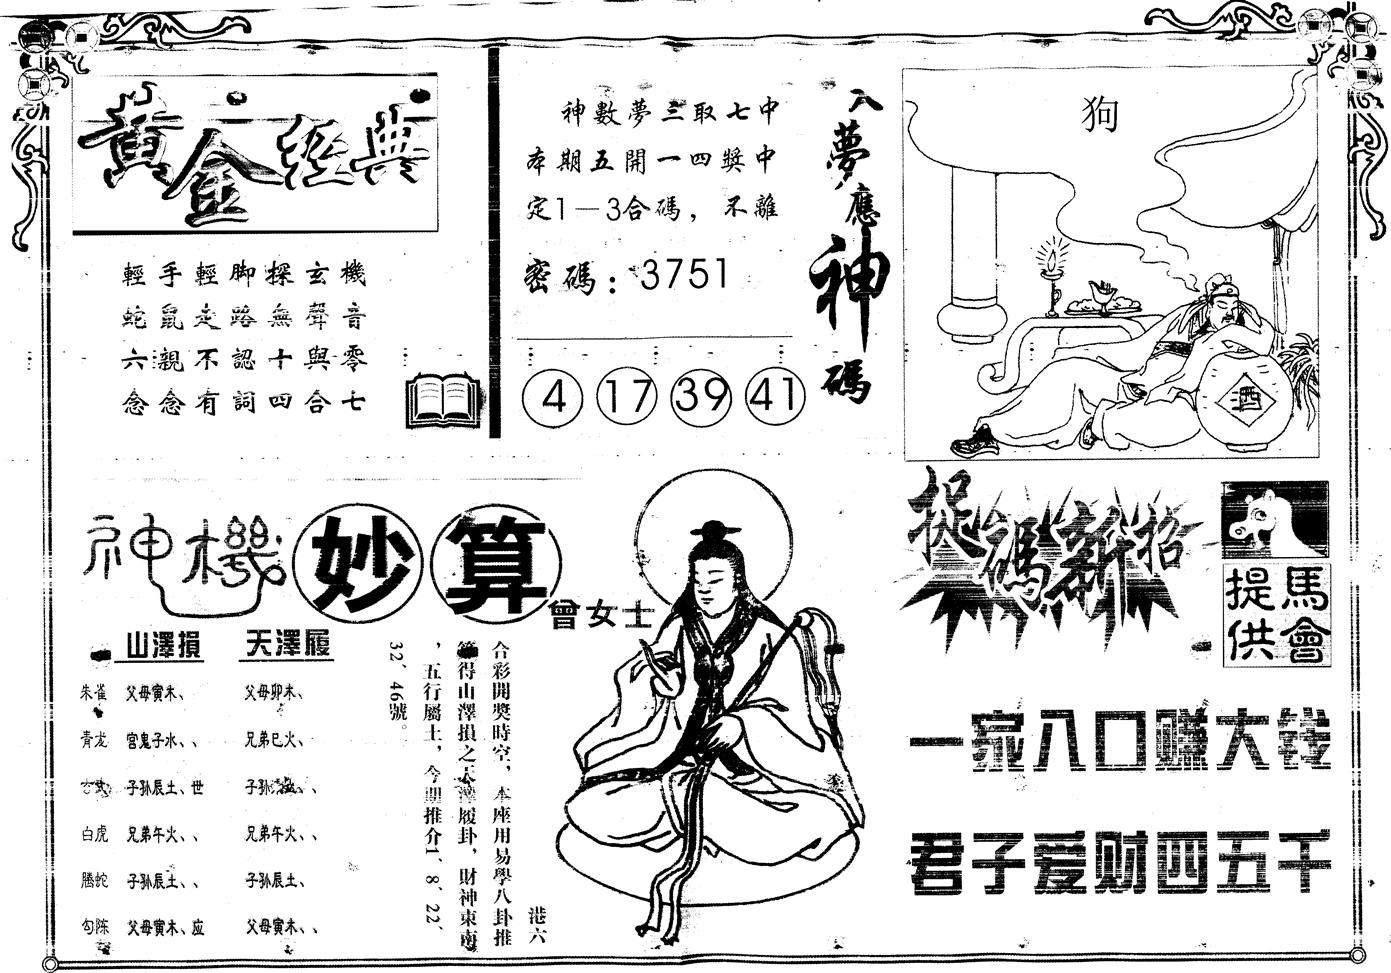 黃金經典
輕手輕脚探玄機
蛇鼠走路無聲音
六親不認十與零
念念有詞四合七
神數夢三取七中
本期五開一四獎中
定1－3合碼，不離
密碼：3751
4 17 39 41
入夢應神碼
狗
酒
神機妙算
曾女士
山澤損 天澤履
朱雀 父母寅木、 父母卯木、
青龙 官鬼子水、、 兄弟巳火、
子孙辰土、世 子孙
白虎 兄弟午火、、 兄弟午火、、
螣蛇 子孙辰土、、 子孙辰土、
勾陈 父母寅木、应 父母寅木、、
港六
合彩開獎時空，本座用易學八卦推
算得山澤損之天澤履卦，財神東南
，五行屬土，今期推介1、8、22、
32、46號。
捉碼新招
馬會提供
一家八口赚大钱
君子爱财四五千